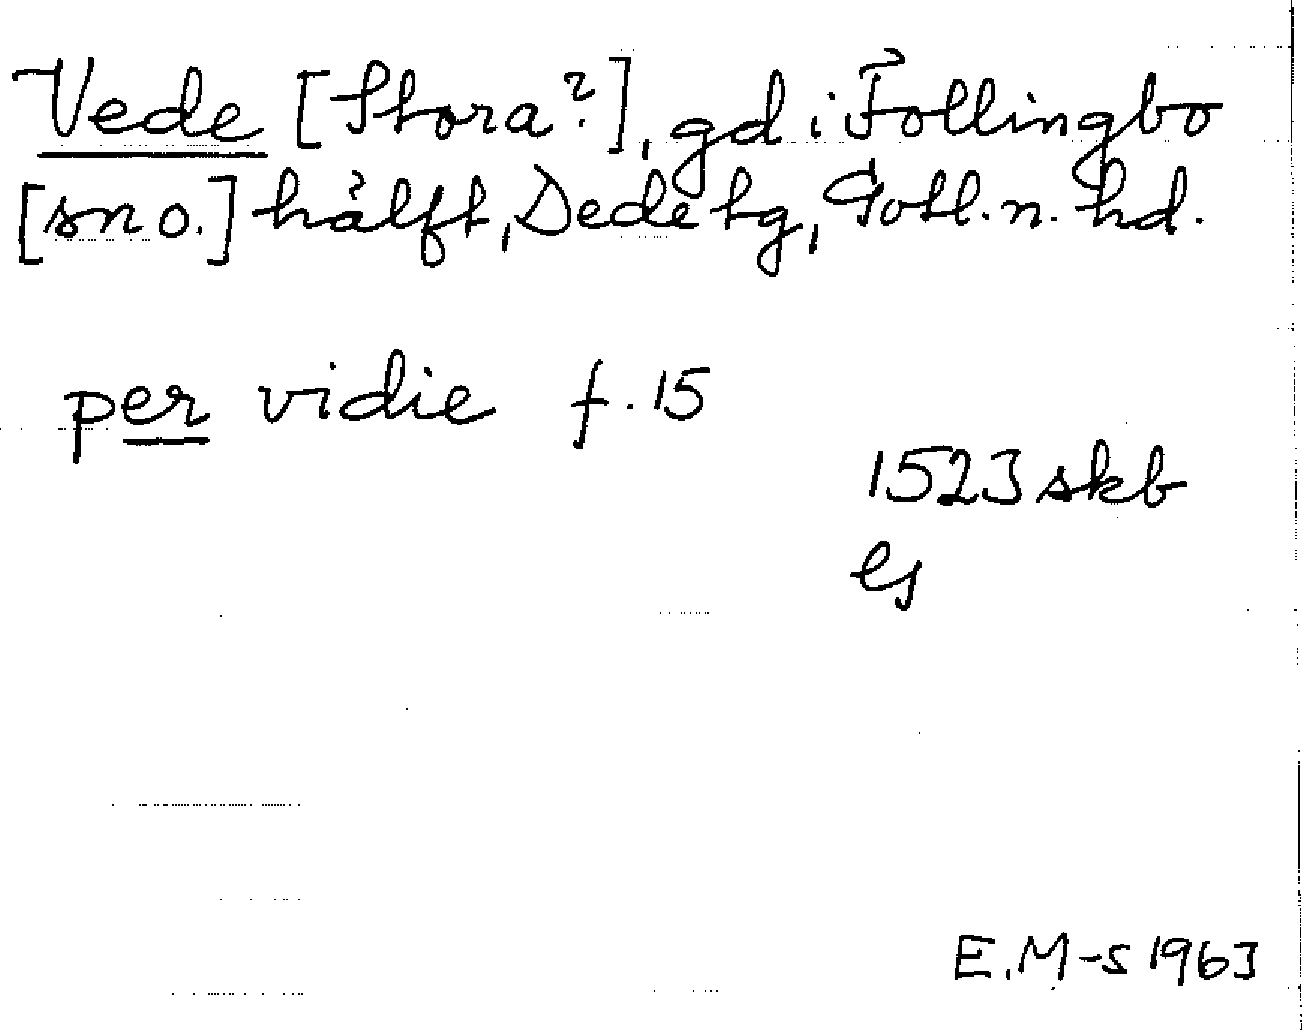 Vede [Stora?], gd i Follingbo
[sn o.] hälft, Dede tg, Gotl. n. hd.
per vidie f. 15
1523 skb
E. M-s 1963